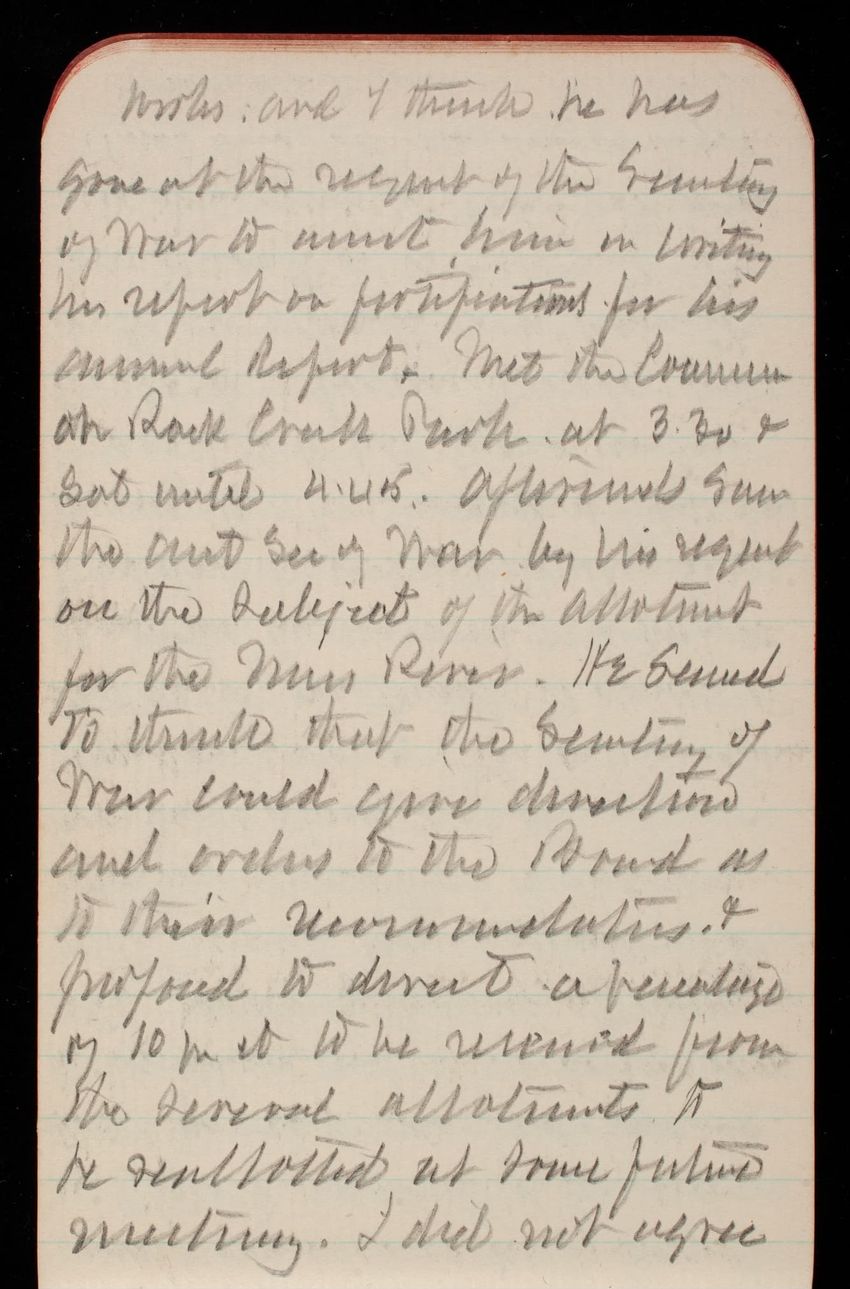 works. and I think he has
gone at the request of the Secretary
of War to assist him in writing
his report on fortifications for his
annual Report. Met the Commn
on Rock Creek Park at 3.30 &
Sat until 4.45. Afterwards Saw
the Asst Sec of War by his request
on the Subject of the Allotment
for the Miss River. He Seemed
To think that the Secretary of
War could give direction
and orders to the Board as
to their recommendations. &
proposed to direct a percentage
of 10 pr ct to be reserved from
the several allotments to
be reallotted at some future
meeting. I did not agree